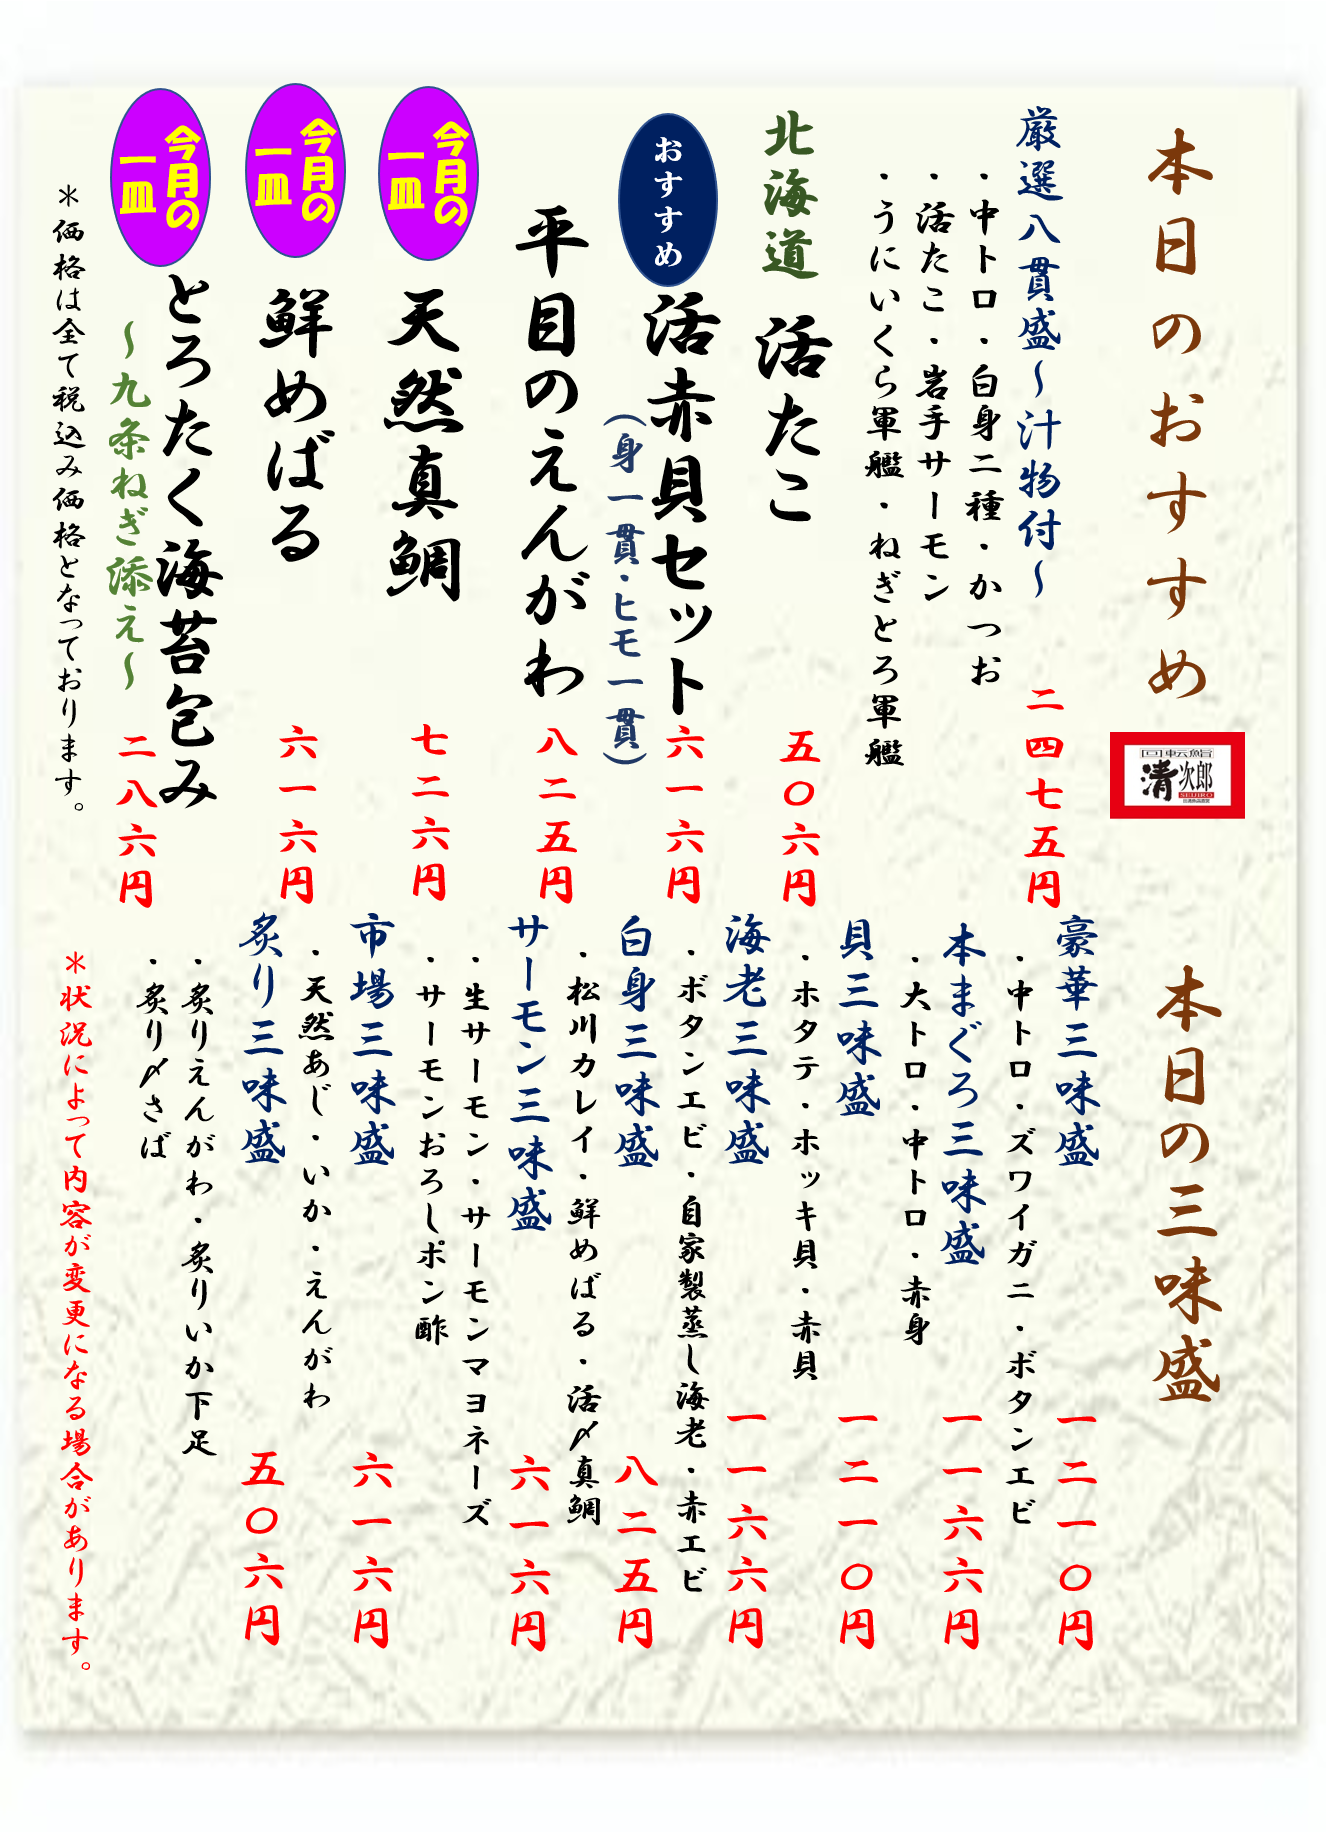 本日のおすすめ
回転鮨
清次郎
SEIJIRO
厳選八貫盛～汁物付～
二四七五円
・中トロ・白身二種・かつお
・活たこ・岩手サーモン
・うにいくら軍艦・ねぎとろ軍艦
北海道 活たこ
五〇六円
おすすめ
活赤貝セット
（身一貫・ヒモ一貫）
六一六円
平目のえんがわ
八二五円
今月の
一皿
天然真鯛
七二六円
今月の
一皿
鮮めばる
六一六円
今月の
一皿
とろたく海苔包み
～九条ねぎ添え～
二八六円
＊価格は全て税込み価格となっております。
本日の三味盛
豪華三味盛
一二一〇円
・中トロ・ズワイガニ・ボタンエビ
本まぐろ三味盛
一一六六円
・大トロ・中トロ・赤身
貝三味盛
一二一〇円
・ホタテ・ホッキ貝・赤貝
海老三味盛
一一六六円
・ボタンエビ・自家製蒸し海老・赤エビ
白身三味盛
八二五円
・松川カレイ・鮮めばる・活〆真鯛
サーモン三味盛
六一六円
・生サーモン・サーモンマヨネーズ
・サーモンおろしポン酢
市場三味盛
六一六円
・天然あじ・いか・えんがわ
炙り三味盛
五〇六円
・炙りえんがわ・炙りいか下足
・炙り〆さば
＊状況によって内容が変更になる場合があります。